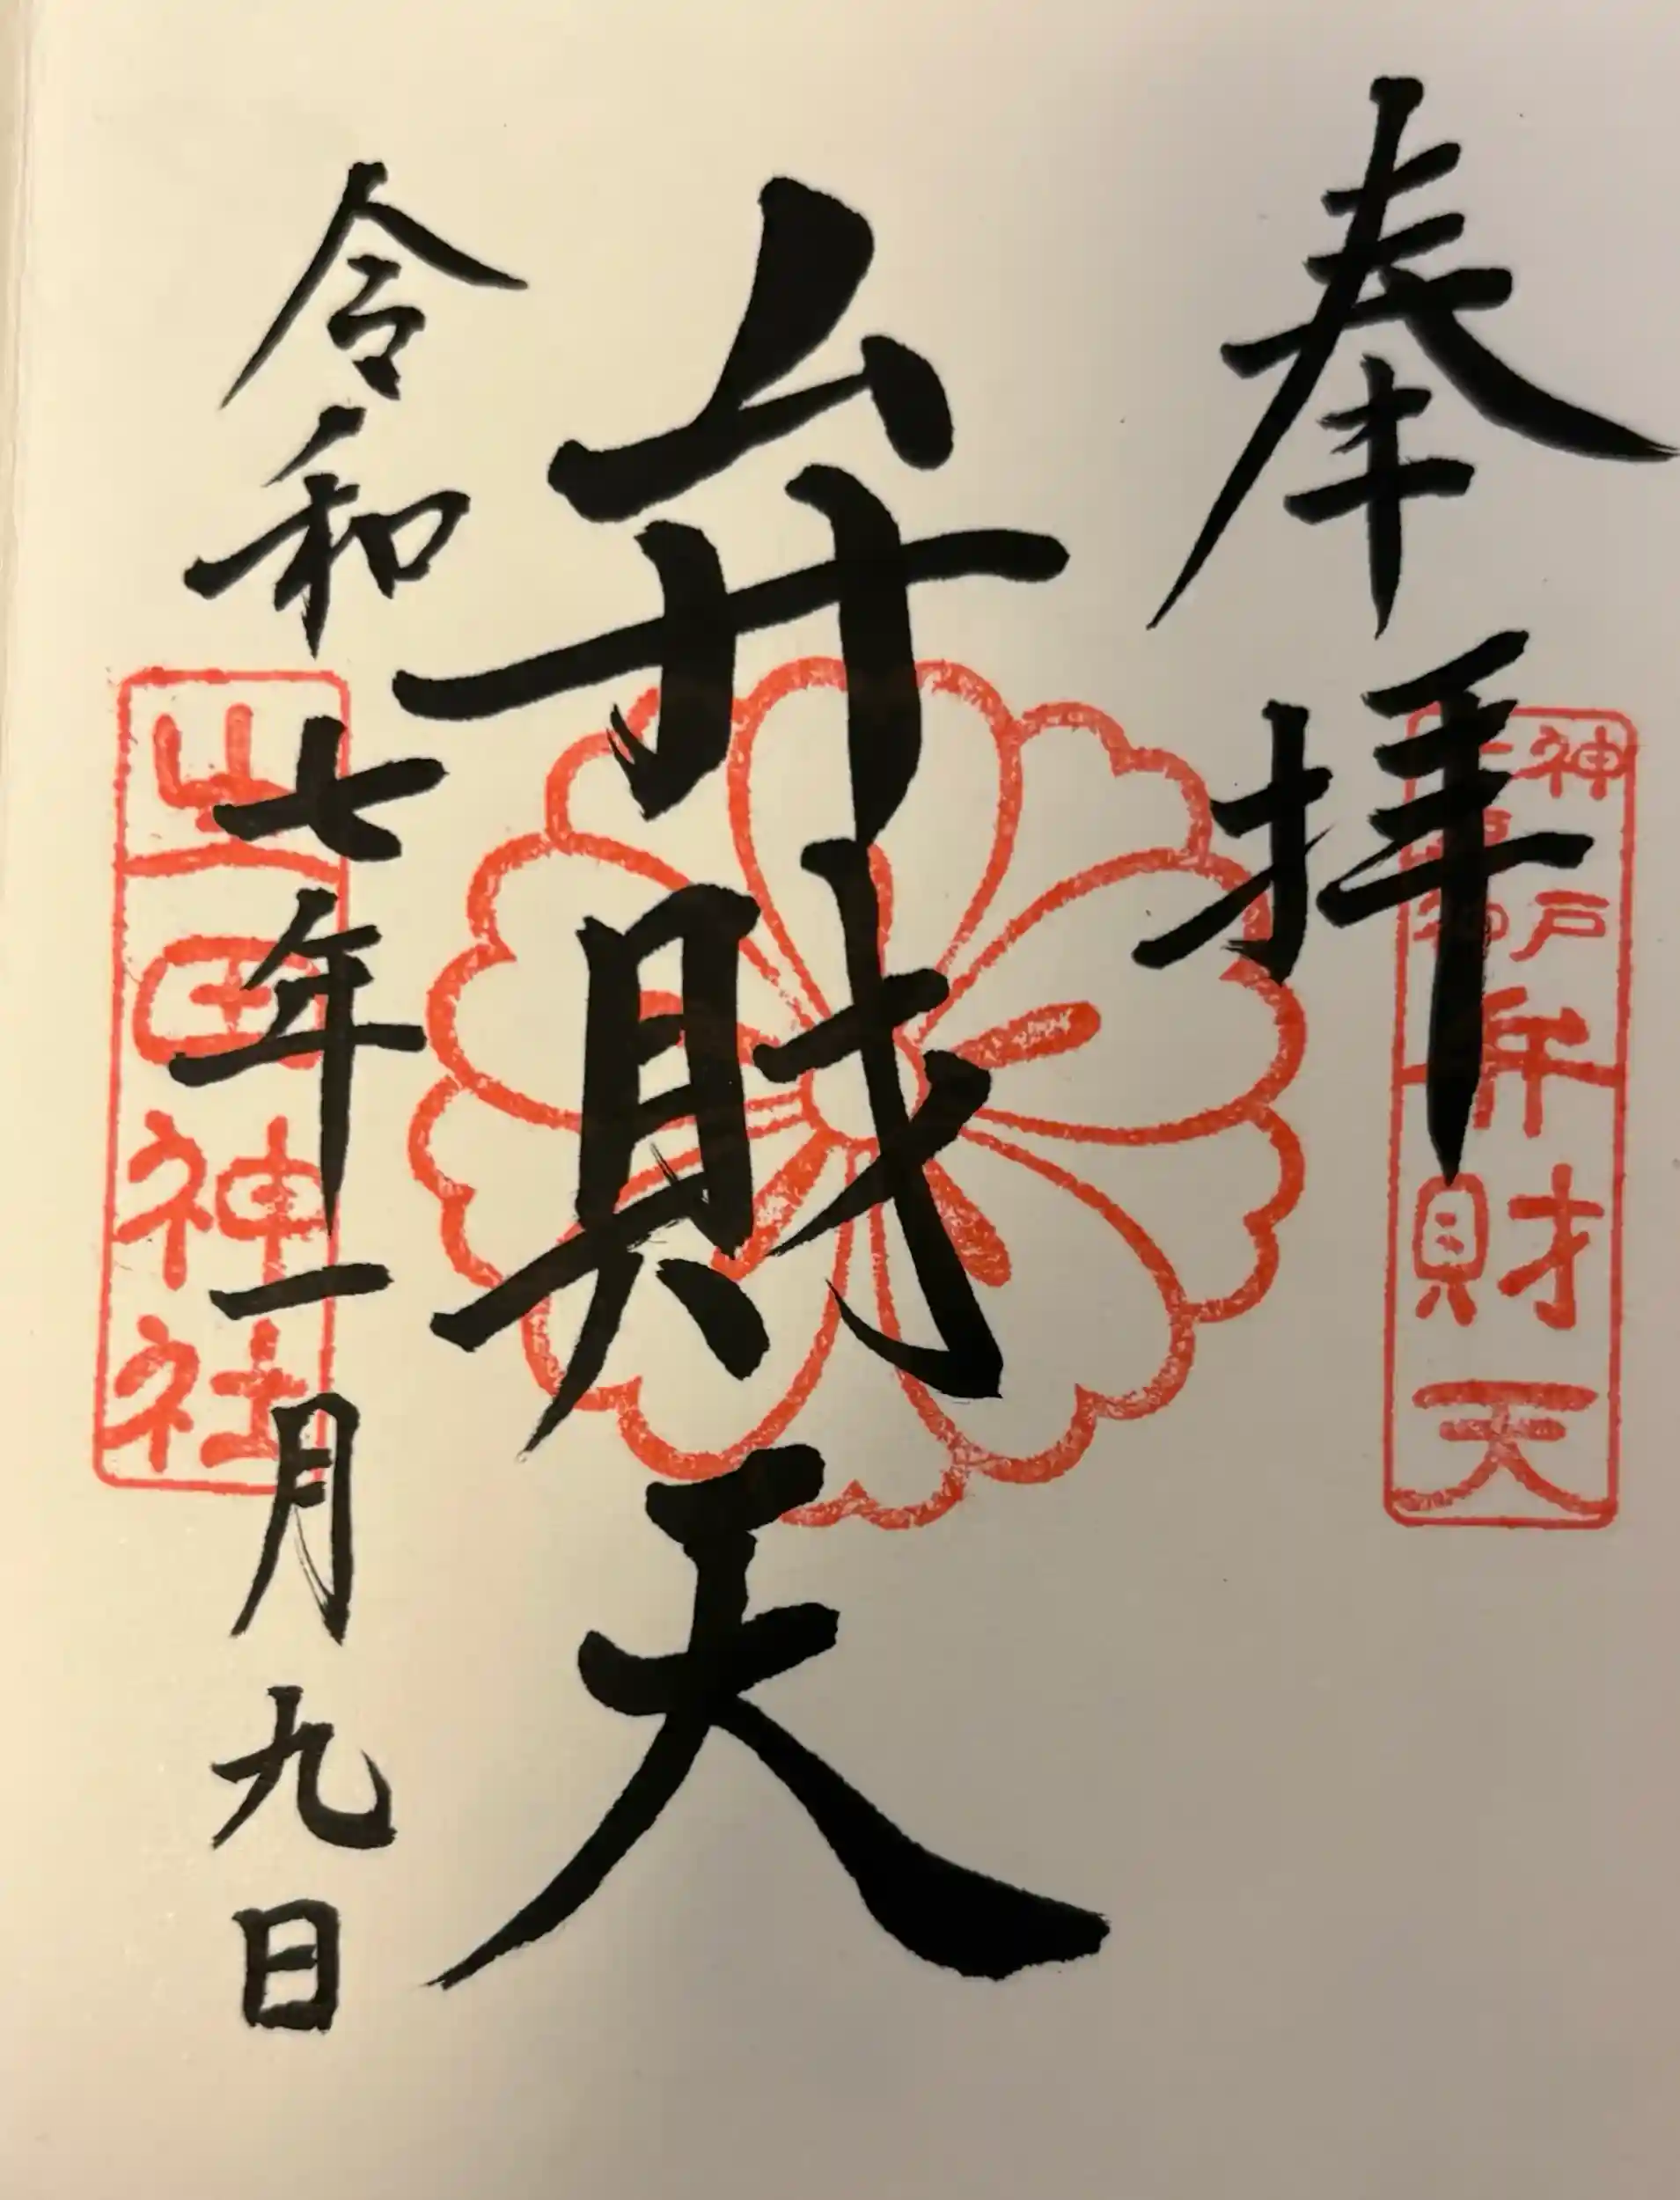 奉拝
神戸
弁財天
弁財天
山田神社
令和七年一月九日